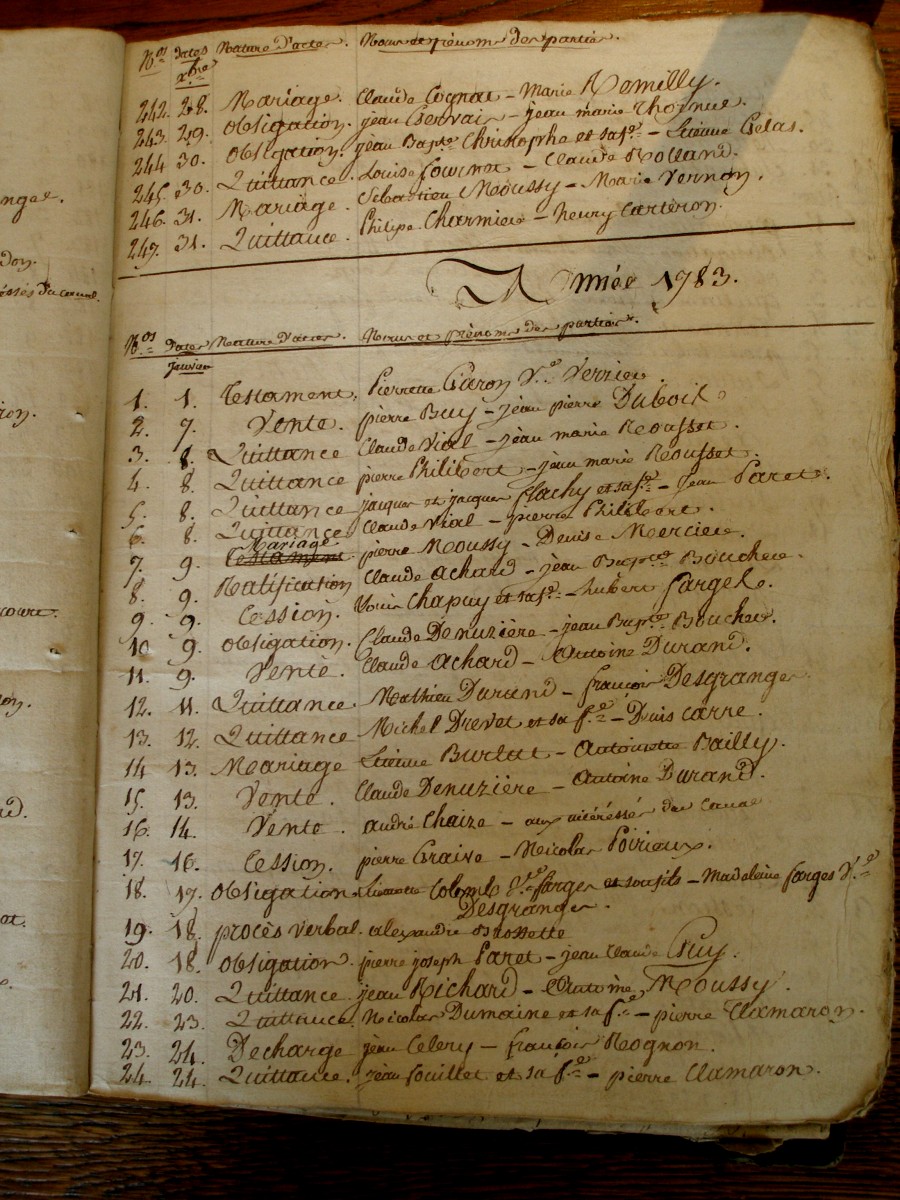 nger.
don.
N.os dates Nature d'actes. Noms et prénoms des parties.
xbre
242. 28. Mariage. Claude Cognat - Marie Remilly.
243. 29. Obligation. jean Gervais - jean marie Thornue.
244 30. Obligation. jean Bapte Christophe et sa fe - Etienne Gelas.
245. 30. Quittance. Louise fournot - Claude Rolland.
246. 31. Mariage. Sebastien Moussy - Marie Vernon.
247. 31. Quittance. Philipe Charmier - henry Carteron.
Année 1783.
N.os dates Nature d'actes. Noms et prénoms des parties.
Janvier
1. 1. Testament, Pierrette Garon Ve Verrier.
2. 7. Vente. pierre Buy - jean pierre Duboil
3. 8. Quittance Claude Vial - jean marie Rousset.
4. 8. Quittance pierre Philibert - jean marie Rousset.
5. 8. Quittance jacques et jacques flachy et sa fe - jean Paret.
6. 8. Quittance Claude Vial - pierre Philibert.
Mariage
7. 9. Testament pierre Moussy - Denise Mercier.
8. 9. Ratification Claude Achard - jean Bapte Boucher.
9. 9. Cession. Chapuy et sa fe - hubert fargel.
10 9. Obligation. Claude Denuzière - jean Bapte Boucher.
11. 9. Vente. Claude Achard - Antoine Durand.
12. 11. Quittance Mathieu Durand - françois Desgranges
13. 12. Quittance Michel Drevet et sa fe - Denis Carre.
14 13. Mariage Etienne Burlat - Antoinette Bailly.
15. 13. Vente. Claude Denuzière - Antoine Durand.
16. 14. Vente. andré Chaize - aux intéressés du Canal
17. 16. Cession. pierre Graive - Nicolas Poirieux.
18. 17. Obligation Pierrette Colomb Ve farges et son fils - Madeleine farges Ve
Desgranges.
19. 18. procès verbal. alexandre Brossette
20. 18. Obligation. pierre joseph Paret - jean Claude Guy.
21. 20. Quittance. jean Richard - Antoine Moussy.
22. 23. Quittance. Nicolas Dumaine et sa fe - pierre Clamaron.
23. 24. Decharge jean Celery - françois Rognon.
24. 24. Quittance. jean fouillet et sa fe - pierre Clamaron.